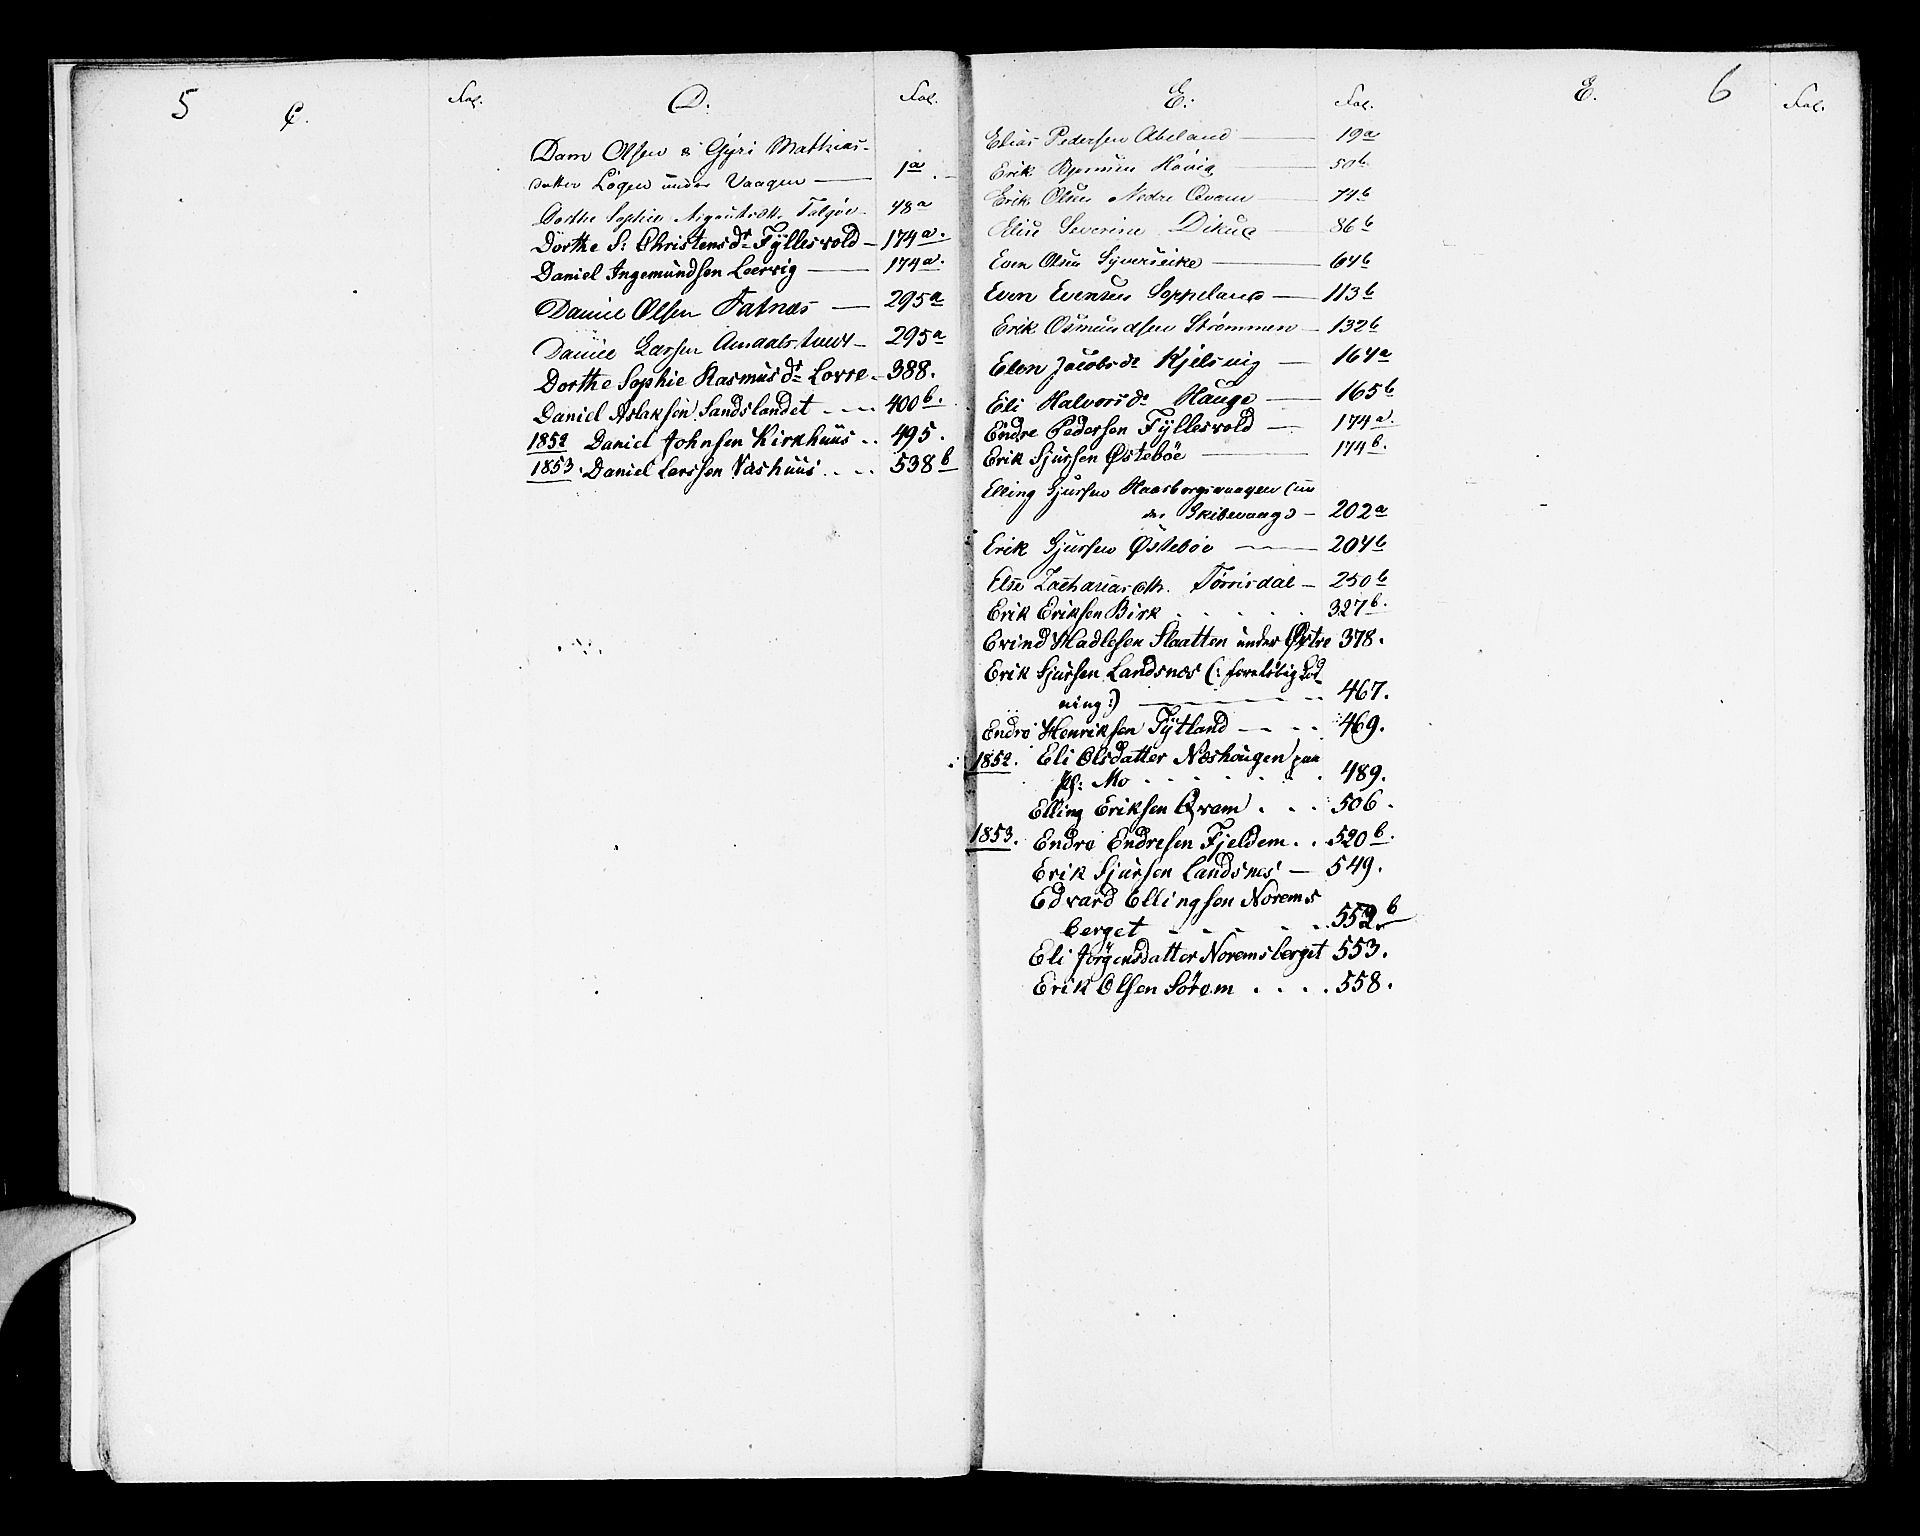 5
C.
Fol.
D.
Fol.
Dam Olsen & Gÿri Mathias-
datter Lögen under Vaagen — 1a
Dorthe Sophie Talgøe 48a
Dorthe S: Christensdr Fÿllesvold — 174a.
Daniel Ingemundsen Leervig — 174a.
Daniel Olsen Fatnæs — 295a
Daniel Larsen — 295a
Dorthe Sophie Rasmusdr Lovre — 388.
Daniel Aslaksen Sandslandet — 400b.
1852 Daniel Johnsen Kirkhuus .. 495.
1853. Daniel Larssen Næshuus ... 538b
E.
Fol.
E.
6
Fol.
Elias Pedersen Abeland — 19a
Erik Hövig 50b
Erik Olsen Nedre Qvam — 74b
Elise Severine — 86b
Even Olsen — 64b
Even Evensen Soppeland — 113b
Erik Osmundsen Strømmen — 132b
Elen Jacobsdr Kjelsvig — 164a
Eli Halvorsdr Hauge — 165b
Endre Pedersen Fÿllesvold — 174a.
Erik Sjursen Østebøe — 174b.
Elling Sjursen Haasborgvaagen (un
der — 202a
Erik Sjursen Østebøe — 204b
Else Zachariasdtr. Tørrisdal — 250b
Erik Eriksen Birk . . . . . 327b.
Evind Madlesen Slaatten under Østre 378.
Erik Sjursen Landsnæs (: foreløbig Lod
ning:) — 467.
Endre Henriksen Tÿtland — 469.
1852. Eli Olsdatter Næshougen paa
Pl: Mo . . . . . . 489.
Elling Eriksen Qvam . . . 506.
1853. Endre Endresen Fjeldem . . 520b.
Erik Sjursen Landsnes — 549.
Edvard Ellingsen Norems
berget — 552b
Eli Jörgensdatter Noremsberget 553.
Erik Olsen Sörem . . . . 558.